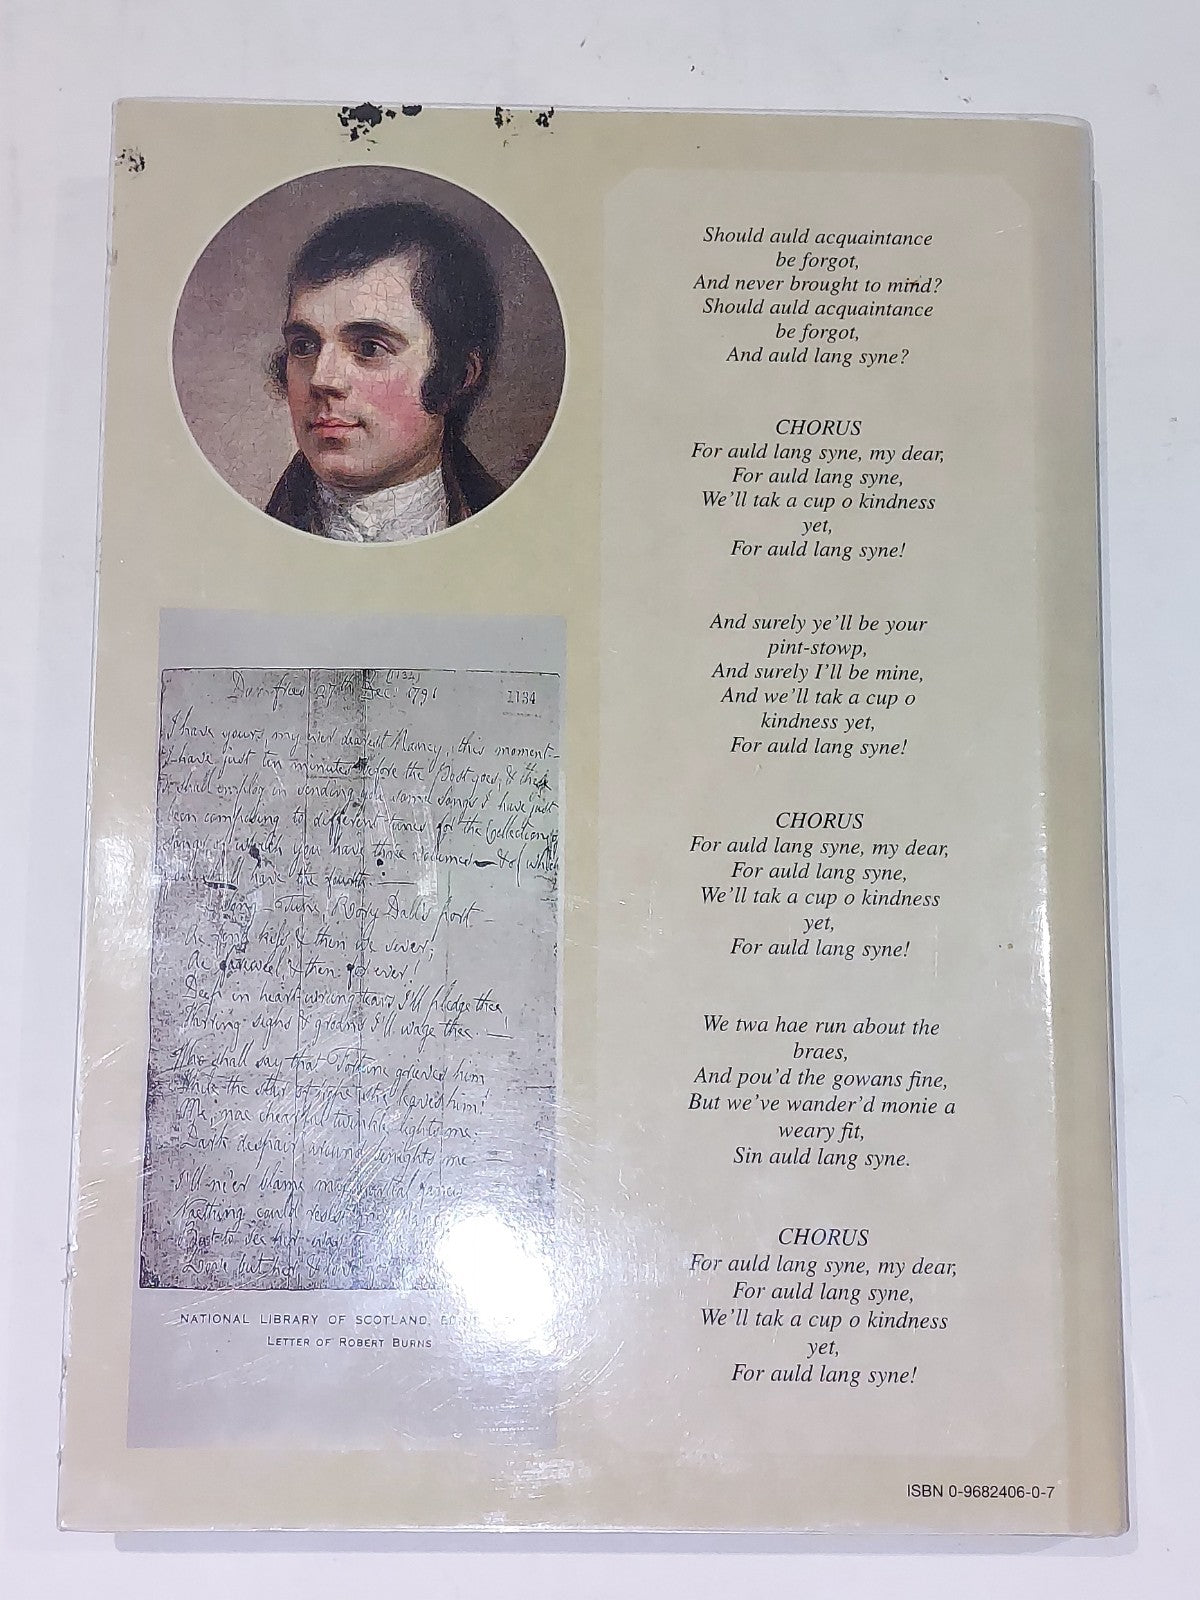 Should auld acquaintance
be forgot,
And never brought to mind?
Should auld acquaintance
be forgot,
And auld lang syne?
CHORUS
For auld lang syne, my dear,
For auld lang syne,
We'll tak a cup o kindness
yet,
For auld lang syne!
And surely ye'll be your
pint-stowp,
And surely I'll be mine,
And we'll tak a cup o
kindness yet,
For auld lang syne!
CHORUS
For auld lang syne, my dear,
For auld lang syne,
We'll tak a cup o kindness
yet,
For auld lang syne!
We twa hae run about the
braes,
And pou'd the gowans fine,
But we've wander'd monie a
weary fit,
Sin auld lang syne.
CHORUS
For auld lang syne, my dear,
For auld lang syne,
We'll tak a cup o kindness
yet,
For auld lang syne!
Dumfries 27th Dec: 1791
1134
I have yours, my ever dearest Nancy, this moment
I have just ten minutes before the Post goes, & these
I shall employ in sending you some songs I have just
been composing to different tunes for the Collection of
Songs of which you have three volumes & of which
you shall have the fourth.
Song - Tune, Rory Dall's port
Ae fond kiss, & then we sever;
Ae fareweel, & then for ever!
Deep in heart-wrung tears I'll pledge thee
Warring sighs & groans I'll wage thee.
Who shall say that Fortune grieves him
While the star of hope she leaves him:
Me, nae chearful twinkle lights me:
Dark despair around benights me
I'll ne'er blame my partial fancy
Naething could resist my
But to see her was
Love but her & love
NATIONAL LIBRARY OF SCOTLAND,
LETTER OF ROBERT BURNS
ISBN 0-9682406-0-7